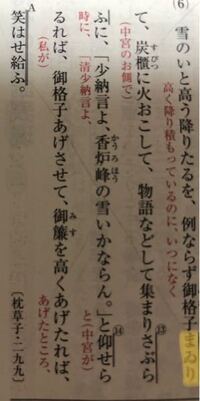 (6)
雪のいと高う降りたるを、例ならず御格子まゐり
高く降り積もっているのに、いつになく
て、炭櫃に火おこして、物語などして集まりさぶら
すびつ
⑬
(中宮のお側で)
ふに、「少納言よ、香炉峰の雪いかならん。」と仰せら
かうろほう
⑭
時に、「清少納言よ、
と(中宮が)
るれば、御格子あげさせて、御簾を高くあげたれば、
みす
(私が)
あげたところ、
A
笑はせ給ふ。
〔枕草子・二九九〕